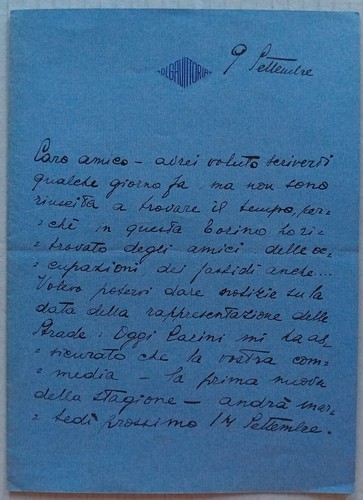 OLGAVITTORIA
9 Settembre
Caro amico - avrei voluto scriverti
qualche giorno fa ma non sono
riuscita a trovare il tempo, per-
- chè in questa Torino ho ri-
- trovato degli amici delle oc-
- cupazioni dei fastidi anche...
Volevo potervi dare notizie sulla
data della rappresentazione delle
Strade: Oggi Pacini mi ha as-
- sicurato che la vostra com-
- media - la prima nuova
della stagione - andrà mar-
- tedì prossimo 14 Settembre.